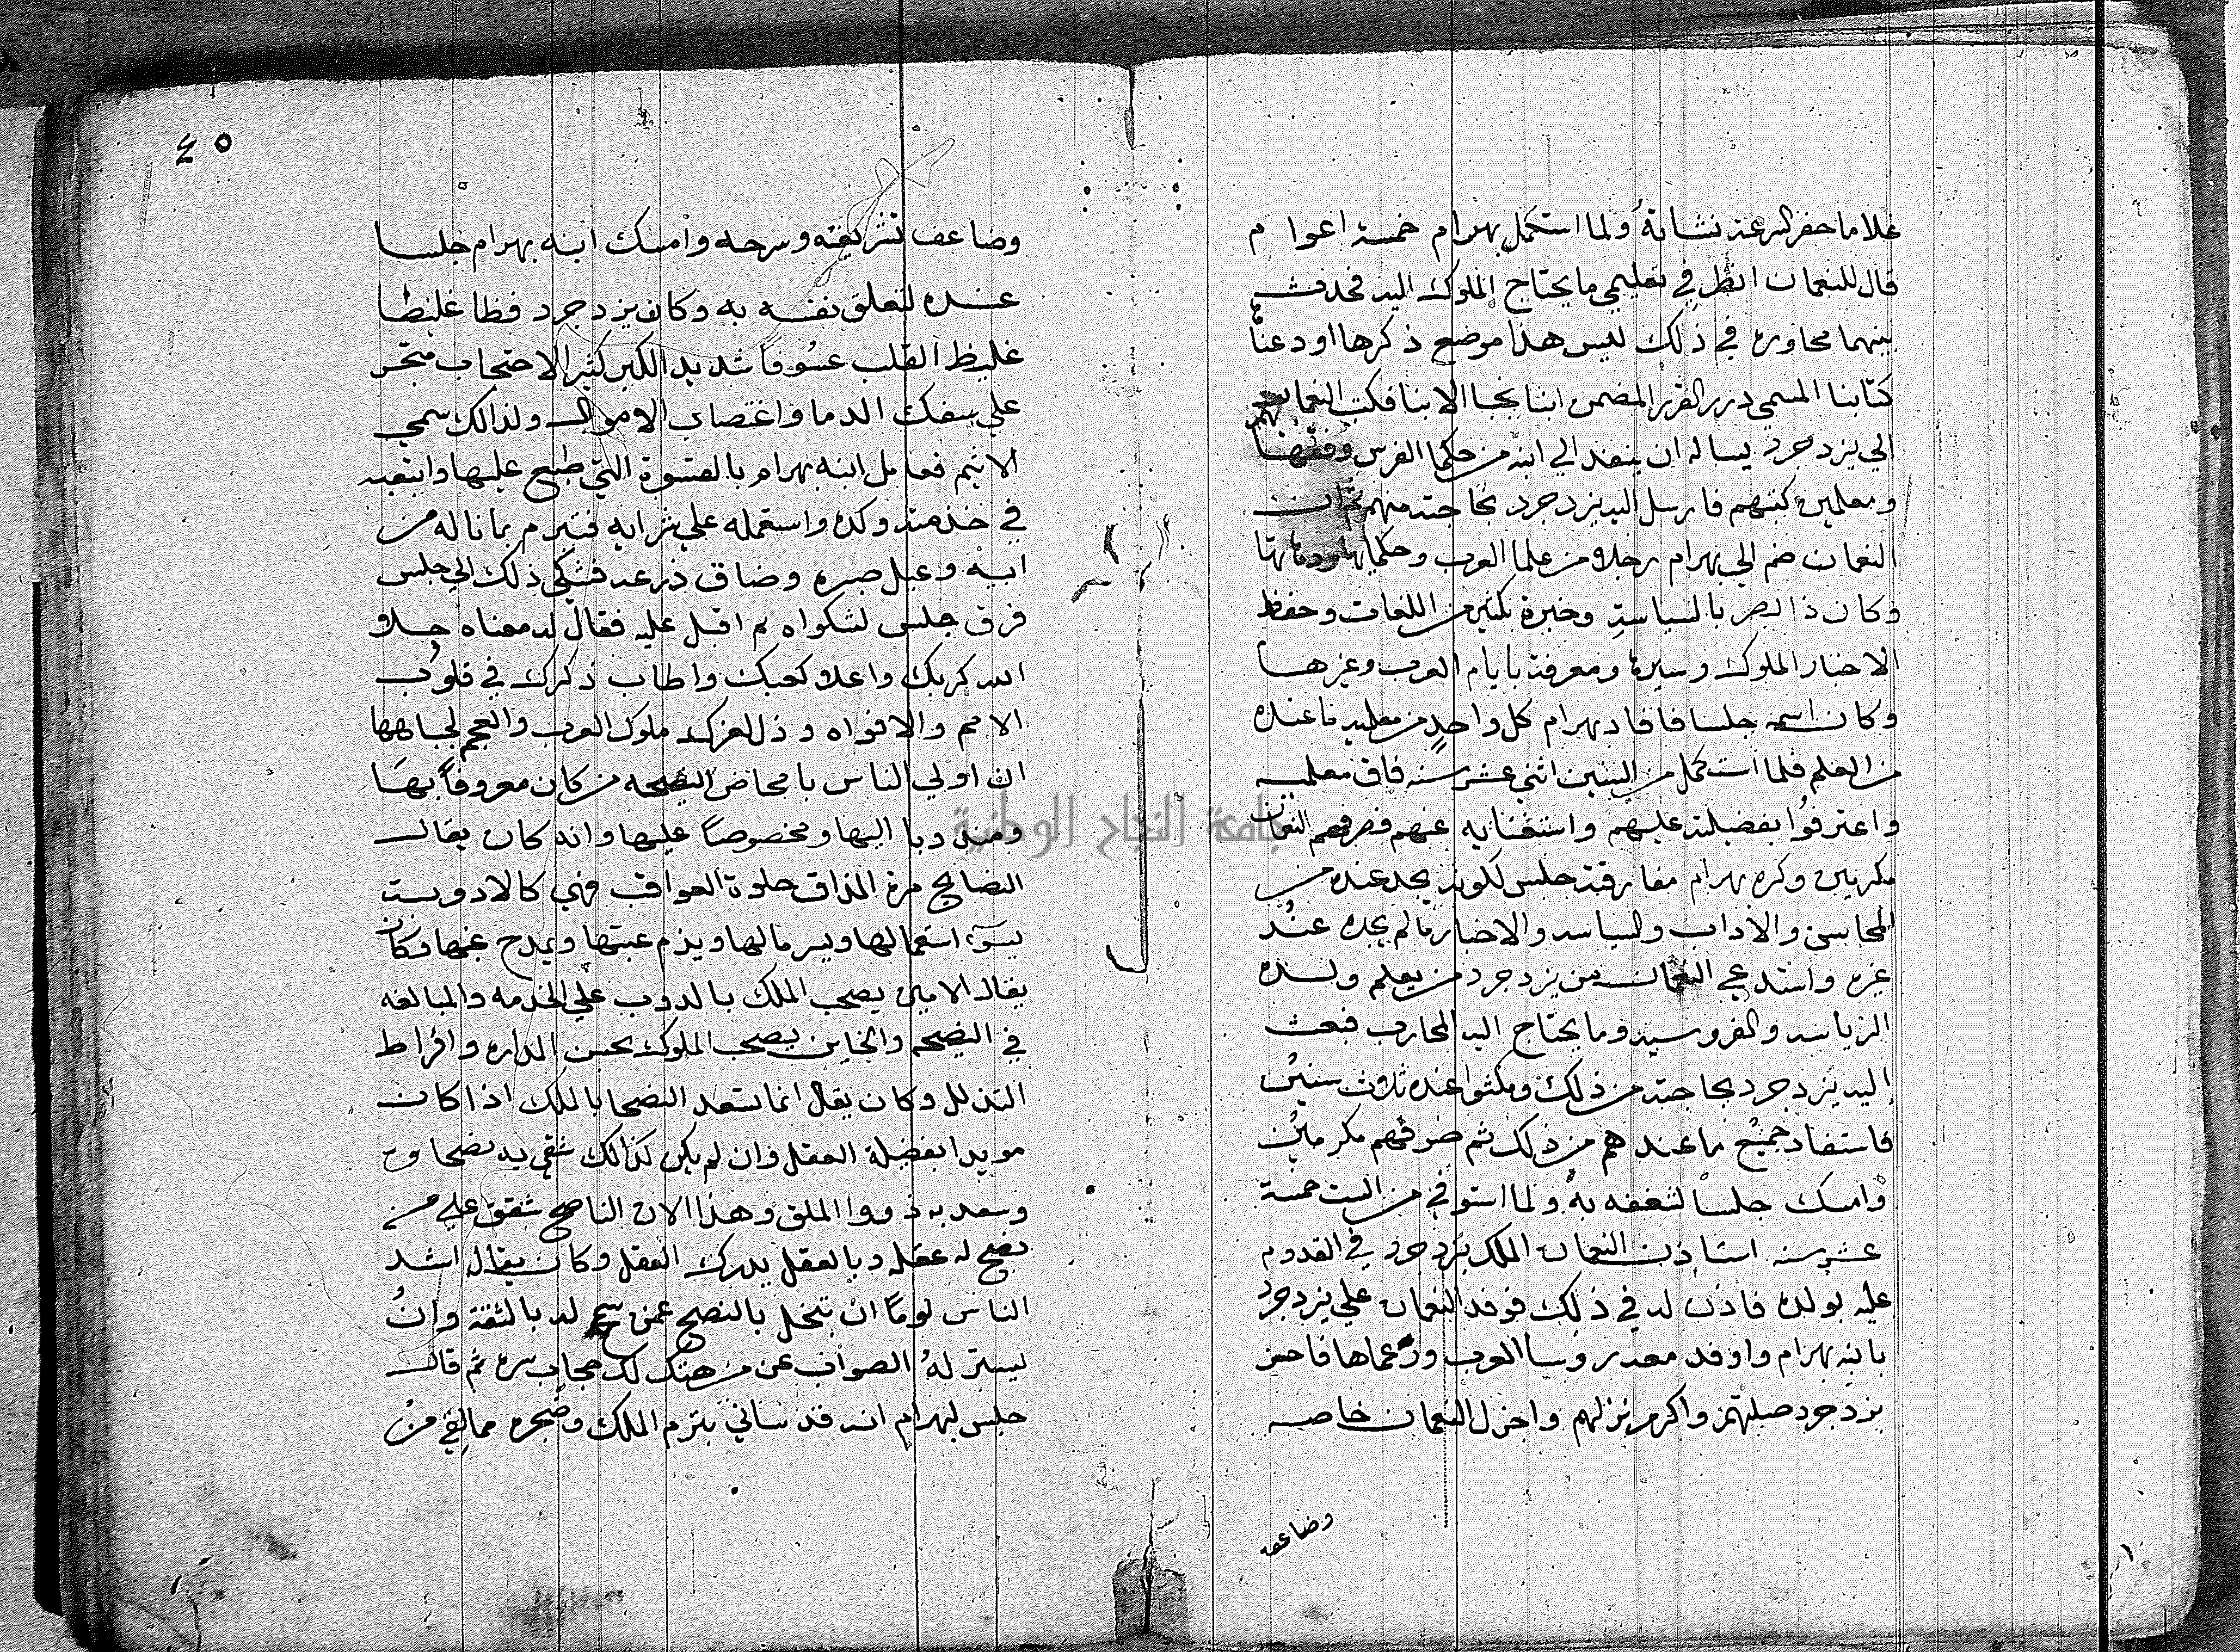 غلاما حفر له عند نشاته ولما استكمل بهرام خمسة اعوام
قال للنعمان انظر في تعليمي ما يحتاج الملوك اليه فحدث
بينهما محاوره في ذلك ليس هذا موضع ذكرها اودعنا
كتابنا المسمي درر الغرر المضمن انبا نجبا الابنا فكتب النعمان
الي يزدجرد يساله ان ينفد الي ابنه من حكما الفرس وفقهها
ومعلمين كتبهم فارسل اليه يزدجرد بحاجته منهم ثم ان
النعمان ضم الي بهرام رجلا من علما العرب وحكمايها ودهاتها
وكان ذا بصر بالسياسة وخبرة بكثير من اللغات وحفظ
الاخبار الملوك وسيرة ومعرفة بايام العرب وغيرها
وكان اسمه جلسا فافاد بهرام كل واحد من معلميه ما عنده
من العلم فلما استكمل من السنين اثني عشر سنه فاق معلميه
واعترفوا بفضيلته عليهم واستغنايه عنهم فصرفهم النعمان
مكرمين وكره بهرام مفارقة جلس لكونه يجد عنده من
المحاسن والاداب والسياسه والاخبار ما لم يجده عند
غيره واستدعي النعمان من يزدجرد من يعلم ولده
الرياسه والفروسيه وما يحتاج اليه المحارب فبعث
اليه يزدجرد بحاجته من ذلك ومكثوا عنده ثلاث سنين
فاستفاد جميع ما عندهم من ذلك ثم صرفهم مكرمين
وامسك جلسا لشغفه به ولما استوفي من الست خمسة
عشر سنه استاذن النعمان الملك يزدجرد في القدوم
عليه بولده فاذن له في ذلك فوفد النعمان علي يزدجرد
بابنه بهرام واوفد معه روسا العرب وزعماها فاحسن
يزدجرد صلتهم واكرم نزلهم واجزل النعمان خاصه
وضاعف
٤٥
وضاعف تشريفته وسرحه وامسك ابنه بهرام جلسا
عنده لتعلق نفسه به وكان يزدجرد فظا غليظا
غليظ القلب عسوفا شديد الكبر كثير الاحتجاب متجر
علي سفك الدما واغتصاب الاموال ولذالك سمي
الاثيم فعامل ابنه بهرام بالقسوة التي طبع عليها واتبعه
في خدمته وكده واستعمله علي شرابه فتبرم بما ناله من
ابيه وعيل صبره وضاق ذرعه فشكي ذلك الي جلس
فرق جلس لشكواه ثم اقبل عليه فقال له معناه جلا
الله كربك واعلا كعبك واطاب ذكرك في قلوب
الامم والافواه وذل لعزك ملوك العرب والعجم لجباهها
ان اولي الناس بامحاض النصيحه من كان معروفا بها
ومندوبا اليها ومخصوصا عليها وانه كان يقال
النصايح مرة المذاق حلوة العواقب فهي كالادويت
يسوء استعمالها ويسر مالها ويذم عبتها ويمدح غبها وكان
يقال الامين يصحب الملك بالدوب علي الخدمه والمبالغه
في النصيحه والخاين يصحب الملوك بحسن المداره وافراط
التذلل وكان يقال انما تسعد النصحا بالملك اذا كان
مويدا بفضيلة العقل وان لم يكن كذالك شقي به نصحاوه
وسعد به ذووا الملق وهذا الان الناصح شفق علي من
نصح له عقله وبالعقل يدرك العقل وكان يقال اشد
الناس لوما ان تبخل بالنصح عمن سمح له بالثقة وان
ليستر له الصواب عن من هتك لك حجاب سره ثم قال
جلس لبهرام انه قد ساني بتبرم الملك وضجره مما لقي من
جامعة النجاح الوطنية